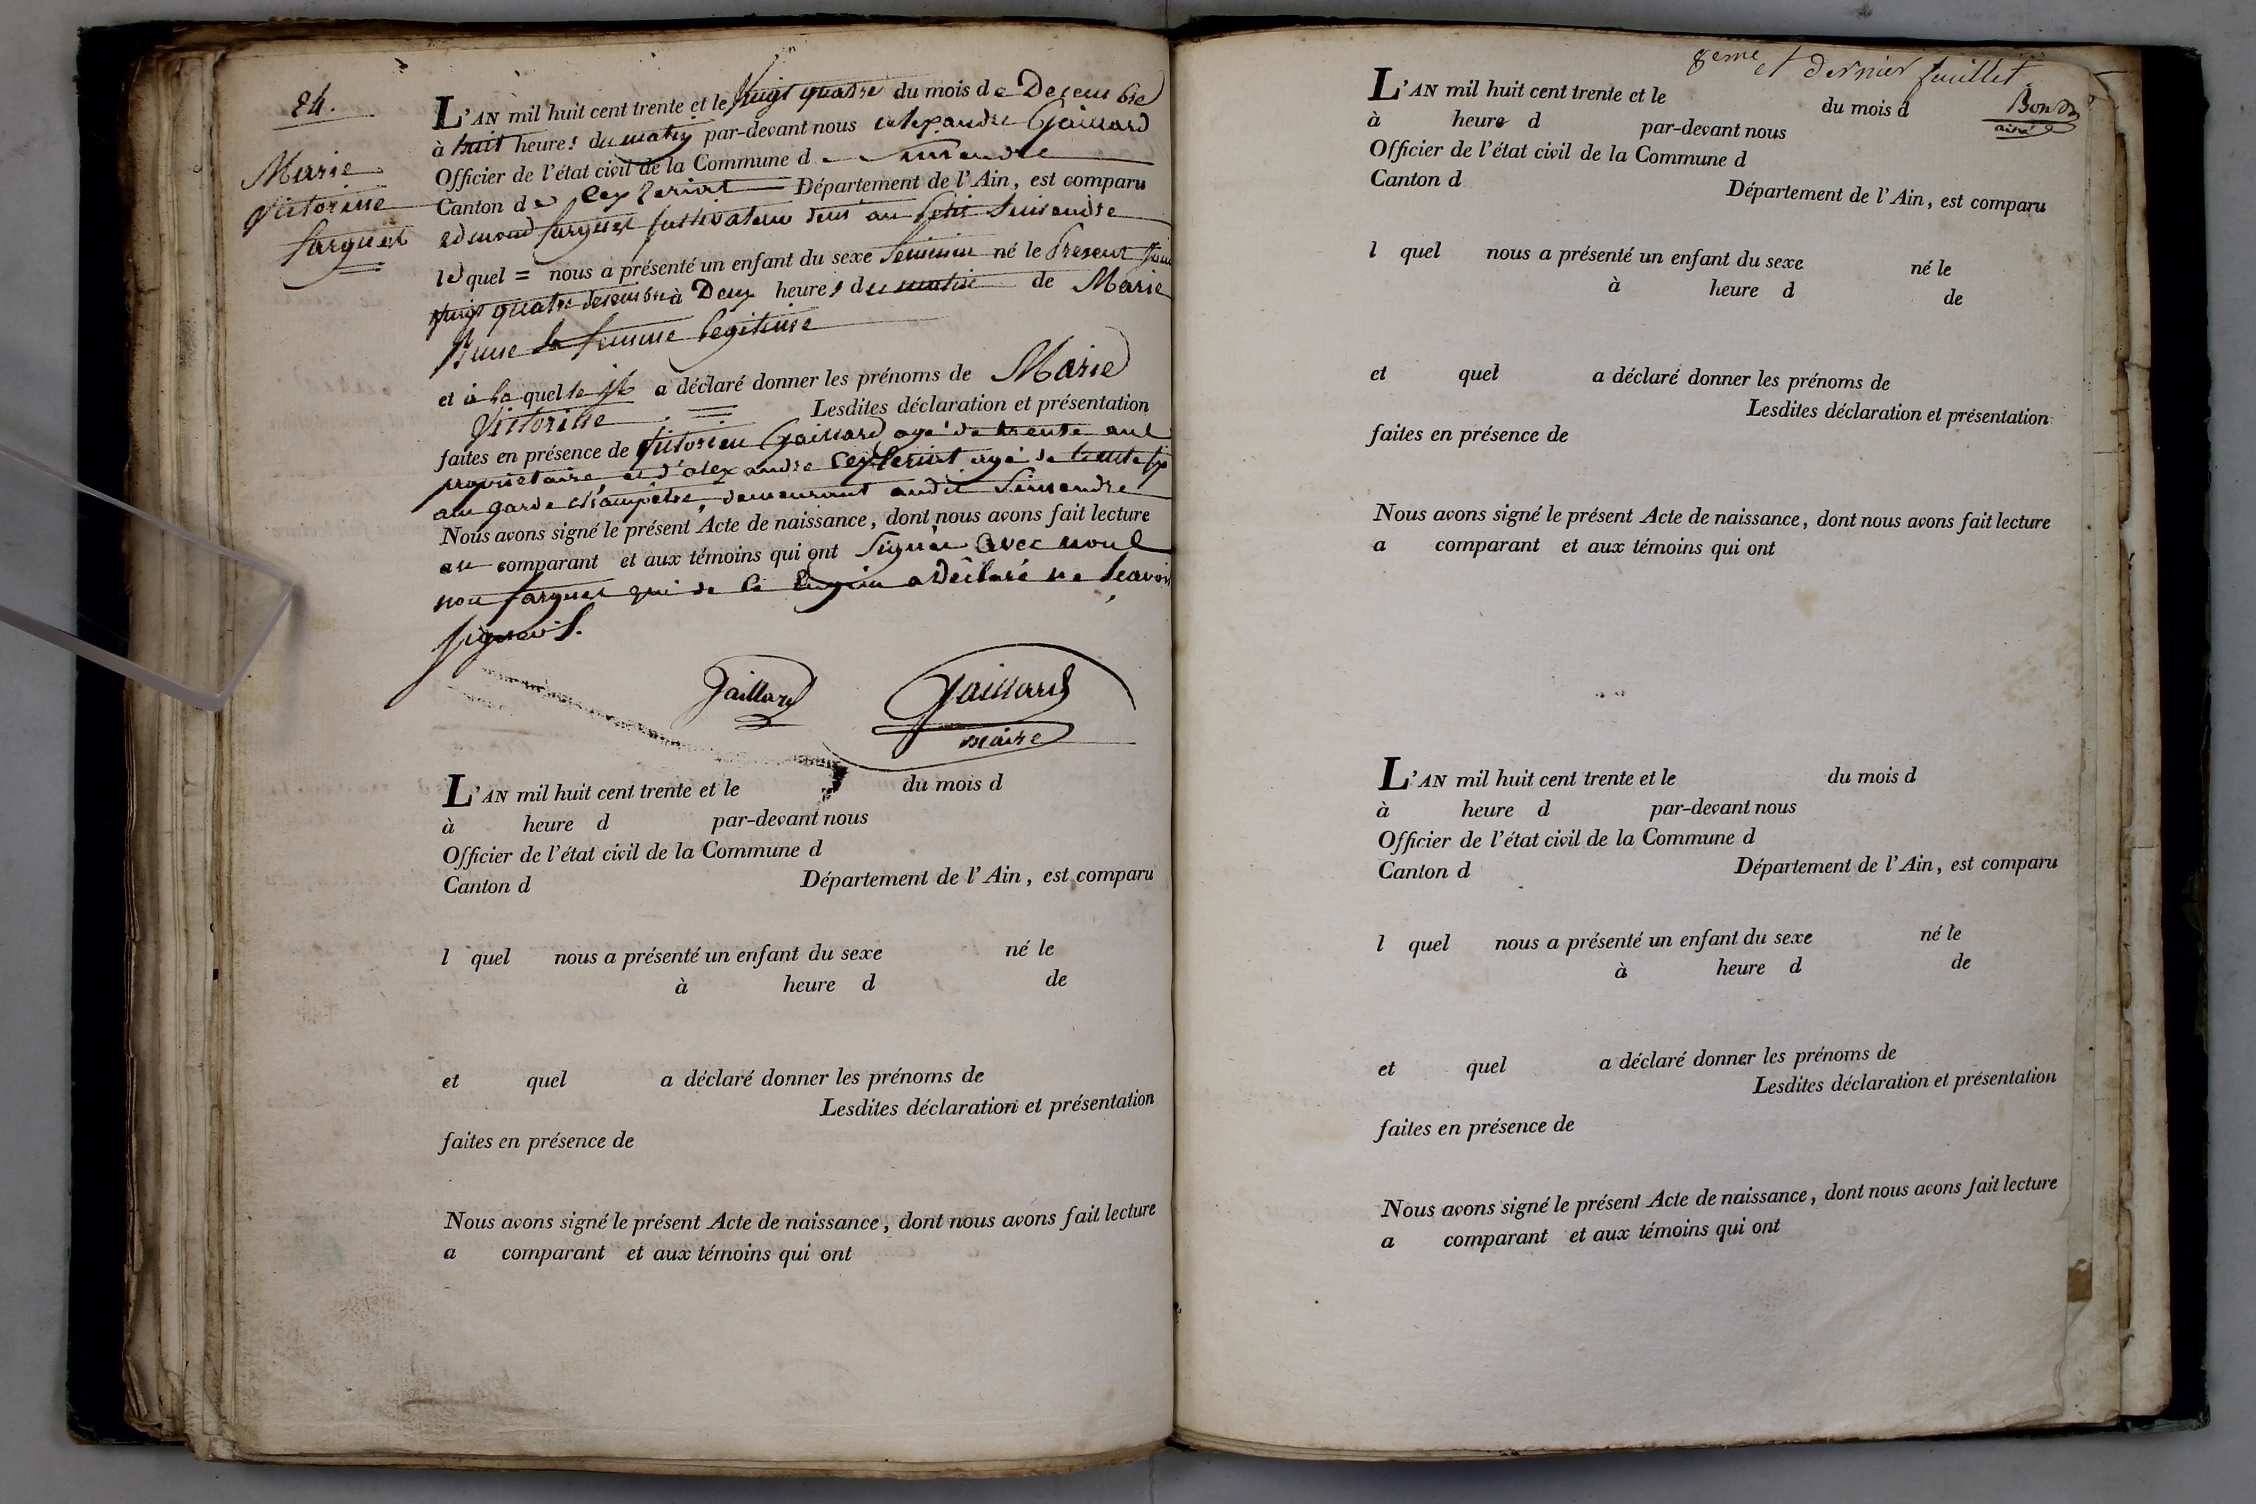 24.
Marie
Victorine
L'AN mil huit cent trente et le vingt quatre du mois de Decembre
à huit heures du matin par-devant nous alexandre Gaillard
Officier de l'état civil de la Commune de Simandre
Canton de Ceyzeriat Département de l'Ain, est comparu
edmond cultivateur au petit Simandre
lequel = nous a présenté un enfant du sexe feminin né le present jour
vingt quatre decembre à Deux heures du matin de Marie
sa femme legitime
et à la quelle il a déclaré donner les prénoms de Marie
Victorine = Lesdites déclaration et présentation
faites en présence de Victorien Gaillard agé de trente ans
proprietaire, et d'alexandre Ceyzeriat agé de
ans garde champêtre, demeurant audit Simandre
Nous avons signé le présent Acte de naissance, dont nous avons fait lecture
au comparant et aux témoins qui ont signés avec nous
non qui de ce enquis a déclaré ne scavoir
signer ./.
Gaillard
Gaillard
maire
L'AN mil huit cent trente et le du mois d
à heure d par-devant nous
Officier de l'état civil de la Commune d
Canton d Département de l'Ain, est comparu
l quel nous a présenté un enfant du sexe né le
à heure d de
et quel a déclaré donner les prénoms de
Lesdites déclaration et présentation
faites en présence de
Nous avons signé le présent Acte de naissance, dont nous avons fait lecture
a comparant et aux témoins qui ont
8eme et dernier feuillet
L'AN mil huit cent trente et le du mois d
à heure d par-devant nous
Officier de l'état civil de la Commune d
Canton d Département de l'Ain, est comparu
l quel nous a présenté un enfant du sexe né le
à heure d de
et quel a déclaré donner les prénoms de
Lesdites déclaration et présentation
faites en présence de
Nous avons signé le présent Acte de naissance, dont nous avons fait lecture
a comparant et aux témoins qui ont
L'AN mil huit cent trente et le du mois d
à heure d par-devant nous
Officier de l'état civil de la Commune d
Canton d Département de l'Ain, est comparu
l quel nous a présenté un enfant du sexe né le
à heure d de
et quel a déclaré donner les prénoms de
Lesdites déclaration et présentation
faites en présence de
Nous avons signé le présent Acte de naissance, dont nous avons fait lecture
a comparant et aux témoins qui ont